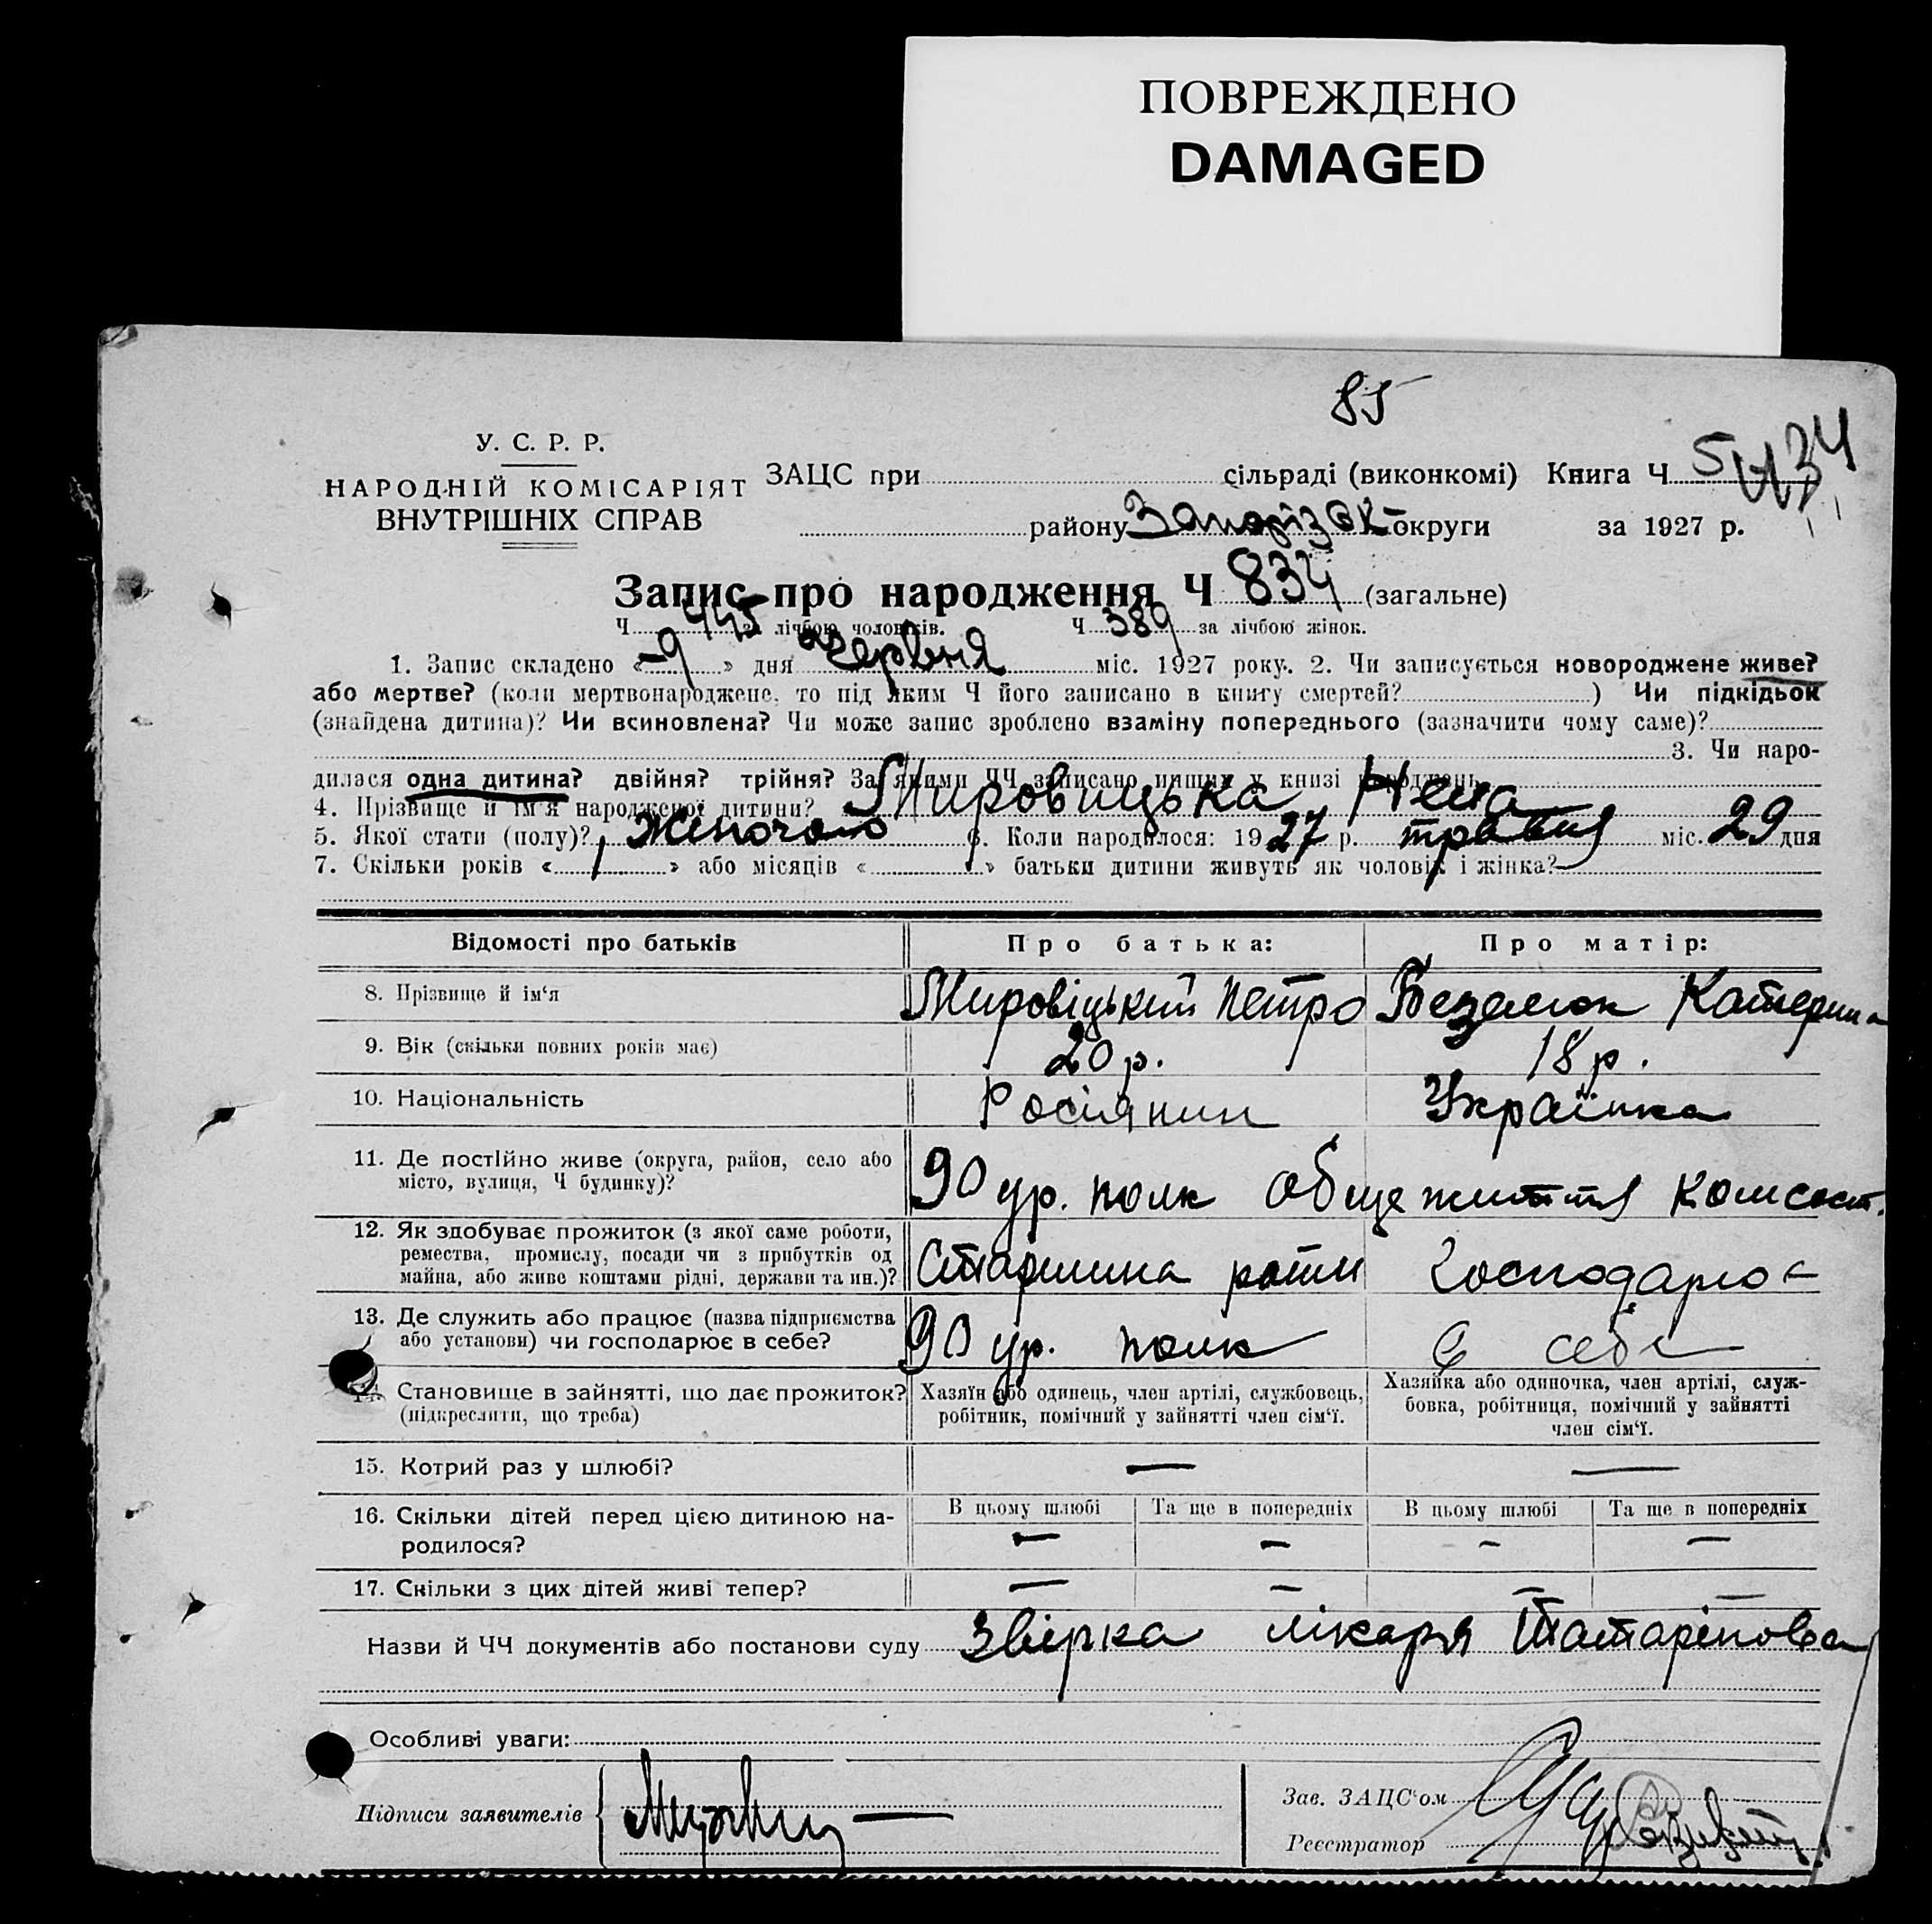 ПОВРЕЖДЕНО
DAMAGED
85
У. С. Р. Р.
НАРОДНІЙ КОМІСАРІЯТ
ВНУТРІШНІХ СПРАВ
ЗАЦС при сільраді (виконкомі) Книга Ч 5
району Запоріз ок округи за 1927 р.
Запис про народження Ч 834 (загальне)
Ч 445 за лічбою чоловіків. Ч 389 за лічбою жінок.
1. Запис складено «9» дня червня міс. 1927 року. 2. Чи записується новороджене живе?
або мертве? (коли мертвонароджене, то під яким Ч його записано в книгу смертей? ) Чи підкідьок
(знайдена дитина)? Чи всиновлена? Чи може запис зроблено взаміну попереднього (зазначити чому саме)?
3. Чи наро-
дилася одна дитина? двійня? трійня? За якими ЧЧ записано инших у книзі народжень
4. Прізвище й ім'я народженої дитини? Мировицька Нена
5. Якої стати (полу)? Жіночого 6. Коли народилося: 1927 р. травня міс. 29 дня
7. Скільки років « » або місяців « » батьки дитини живуть як чоловік і жінка?
Відомості про батьків Про батька: Про матір:
8. Прізвище й ім'я Мировіцький Петро Катерина
9. Вік (скільки повних років має) 20 р. 18 р.
10. Національність Росіянин Українка
11. Де постійно живе (округа, район, село або
місто, вулиця, Ч будинку)? 90 ур. полк общежиття комсост.
12. Як здобуває прожиток (з якої саме роботи,
ремества, промислу, посади чи з прибутків од
майна, або живе коштами рідні, держави та ин.)? Старшина роти Господарює
13. Де служить або працює (назва підприємства
або установи) чи господарює в себе? 90 ур. полк в себе
14. Становище в зайнятті, що дає прожиток?
(підкреслити, що треба)
Хазяїн або одинець, член артілі, службовець,
робітник, помічний у зайнятті член сім'ї.
Хазяйка або одиночка, член артілі, служ-
бовка, робітниця, помічний у зайнятті
член сім'ї.
15. Котрий раз у шлюбі? — —
16. Скільки дітей перед цією дитиною на-
родилося?
В цьому шлюбі Та ще в попередніх В цьому шлюбі Та ще в попередніх
— — — —
17. Скільки з цих дітей живі тепер? — — — —
Назви й ЧЧ документів або постанови суду Звірка лікаря Татарінова
Особливі уваги:
Підписи заявителів
Зав. ЗАЦС'ом
Реєстратор